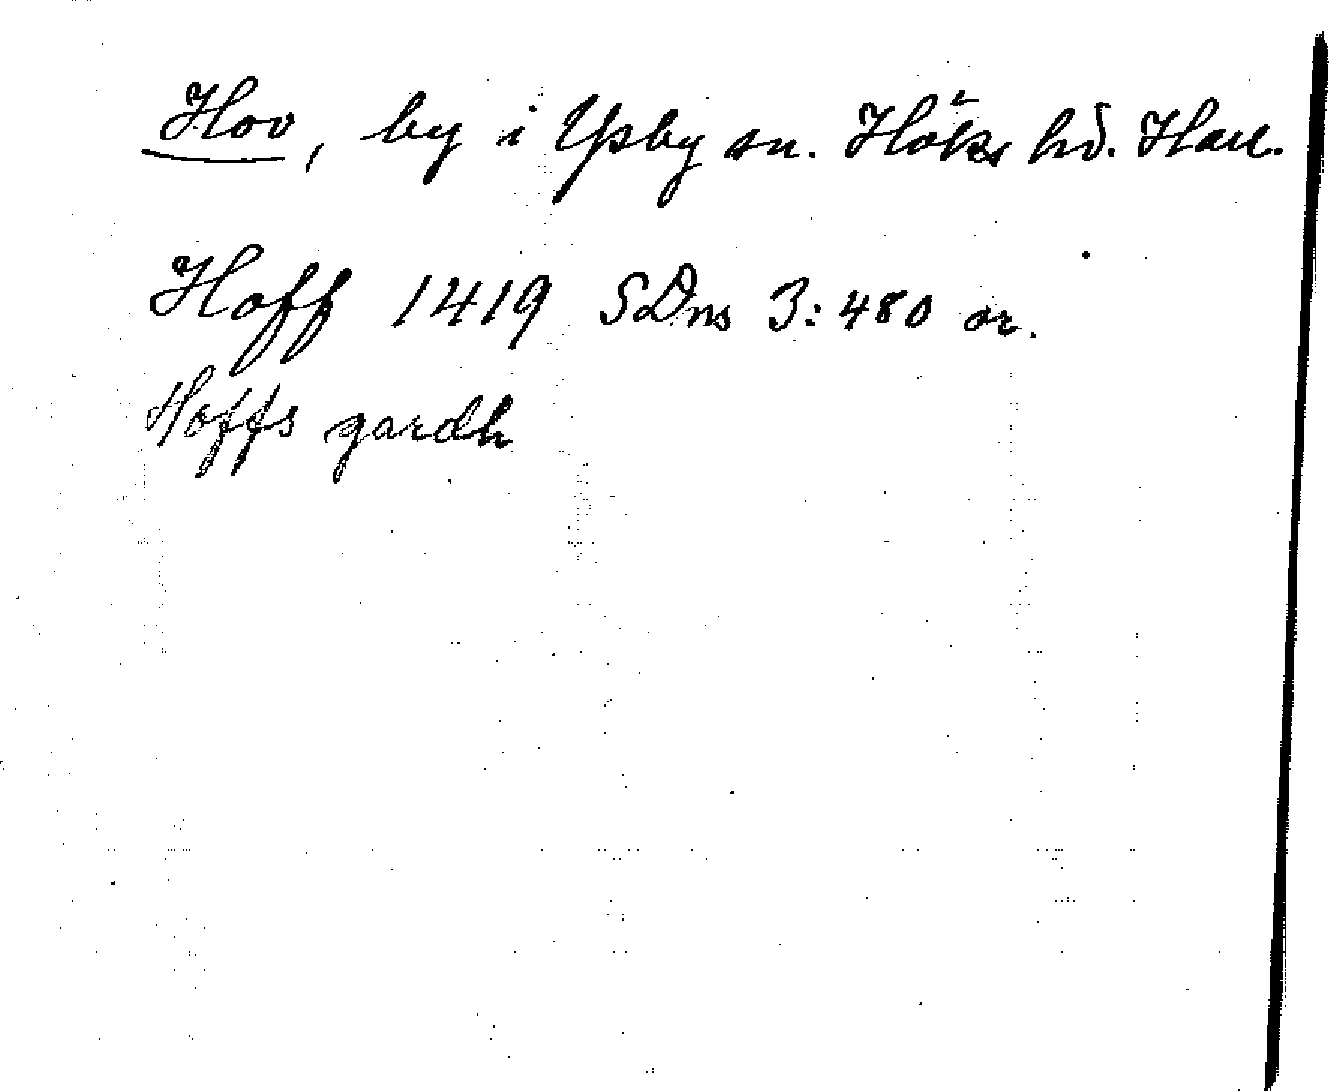 Hov, by i Ysby sn. Höks hd. Hall.
Hoff 1419 SDns 3:480 or.
Hoffs gardh